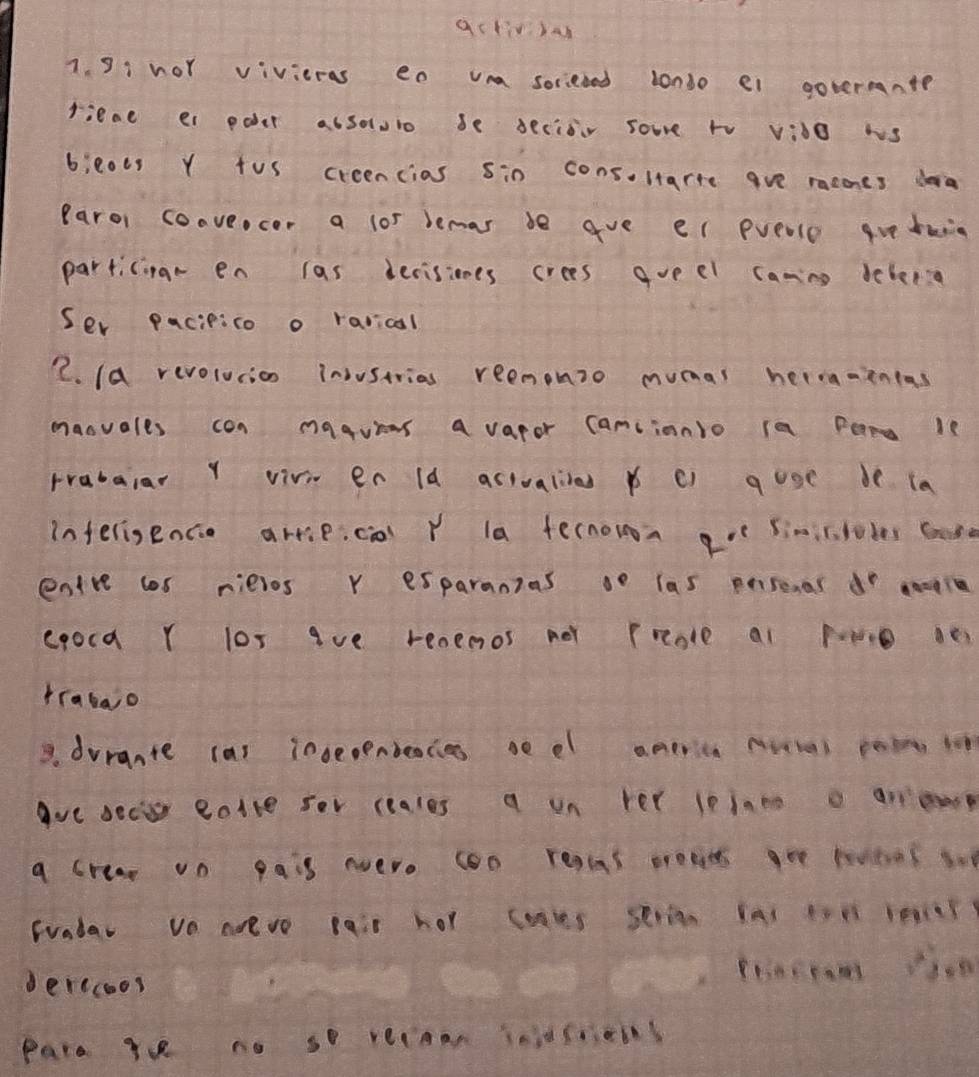 actividad
1. Si hoy vivieras en una sociedad donde el gobernante
tiene el poder absoluto de decidir sobre tu vida tus
bienes y tus creencias sin consultarte que racones daria
para convencer a los demas de que el pueblo que
participar en las decisiones crees que el camino deberia
Ser pacifico o radical
2. la revolucion industrias reemplazo muchas herramientas
manuales con maquinas a vapor cambiando la forma de
trabajar y vivir en la actualidad y el auge de la
inteligencia artificial y la tecnologia que similitudes
entre los miedos y esparanzas de las personas de
epoca y los que tenemos hoy frente al del
trabajo
3. durante las independencias de el america
que decidir entre ser leales a un rey lejano o
a crear un pais nuevo con reglas que
fundar un nuevo pais hoy cuales serian las tres
derechos principales
para que no se repitan injusticias